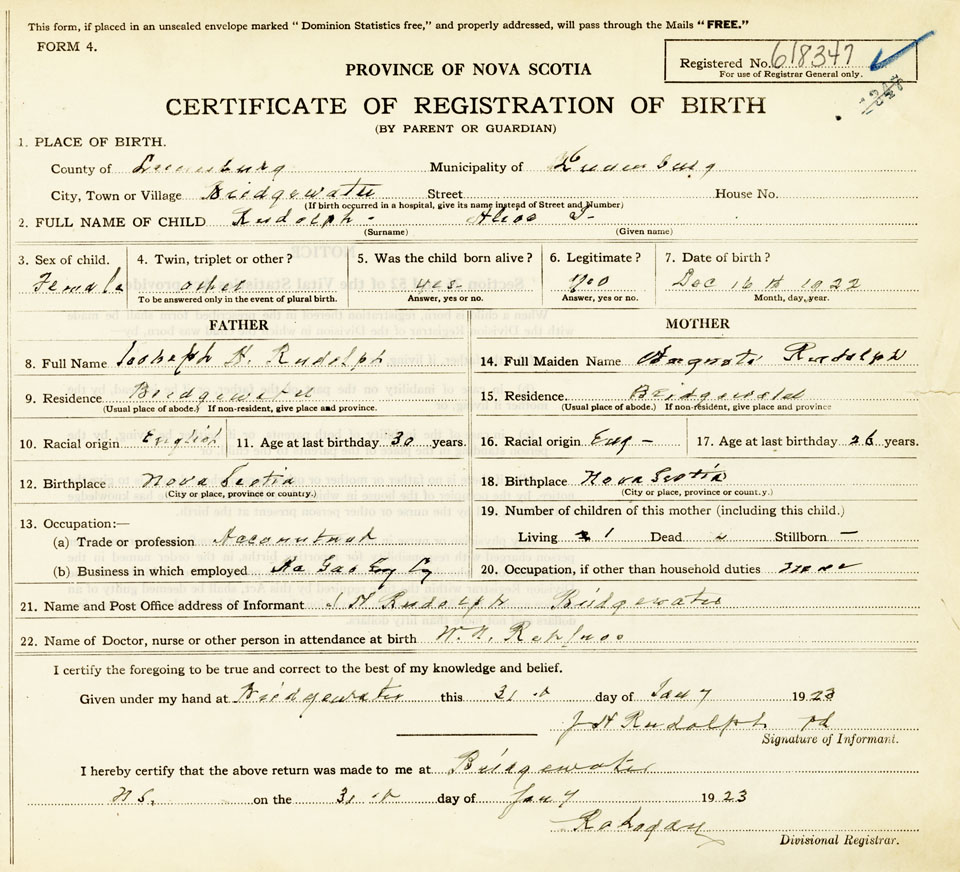 This form, if placed in an unsealed envelope marked "Dominion Statistics free," and properly addressed, will pass through the Mails "FREE."
FORM 4.
Registered No. 618347
For use of Registrar General only.
PROVINCE OF NOVA SCOTIA
CERTIFICATE OF REGISTRATION OF BIRTH
(BY PARENT OR GUARDIAN)
1. PLACE OF BIRTH.
County of Lunenburg Municipality of Lunenburg
City, Town or Village Bridgewater Street House No.
(If birth occurred in a hospital, give its name instead of Street and Number)
2. FULL NAME OF CHILD Rudolph - Alice
(Surname) (Given name)
3. Sex of child. 4. Twin, triplet or other? 5. Was the child born alive? 6. Legitimate? 7. Date of birth?
Female other yes Yes Dec 16th 1922
To be answered only in the event of plural birth. Answer, yes or no. Answer, yes or no. Month, day, year.
FATHER MOTHER
8. Full Name Joseph H. Rudolph 14. Full Maiden Name Rudolph
9. Residence Bridgewater 15. Residence Bridgewater
(Usual place of abode.) If non-resident, give place and province. (Usual place of abode.) If non-resident, give place and province
10. Racial origin English 11. Age at last birthday 30 years. 16. Racial origin Eng - 17. Age at last birthday 26 years.
12. Birthplace Nova Scotia 18. Birthplace Nova Scotia
(City or place, province or country.) (City or place, province or country.)
13. Occupation:— 19. Number of children of this mother (including this child.)
(a) Trade or profession Accountant Living 1 Dead Stillborn —
(b) Business in which employed 20. Occupation, if other than household duties none
21. Name and Post Office address of Informant J H Rudolph Bridgewater
22. Name of Doctor, nurse or other person in attendance at birth W. N. Rehfuss
I certify the foregoing to be true and correct to the best of my knowledge and belief.
Given under my hand at Bridgewater this 31 day of Jany 1923
J H Rudolph
Signature of Informant.
I hereby certify that the above return was made to me at Bridgewater
N S. on the 31 day of Jany 1923
Divisional Registrar.